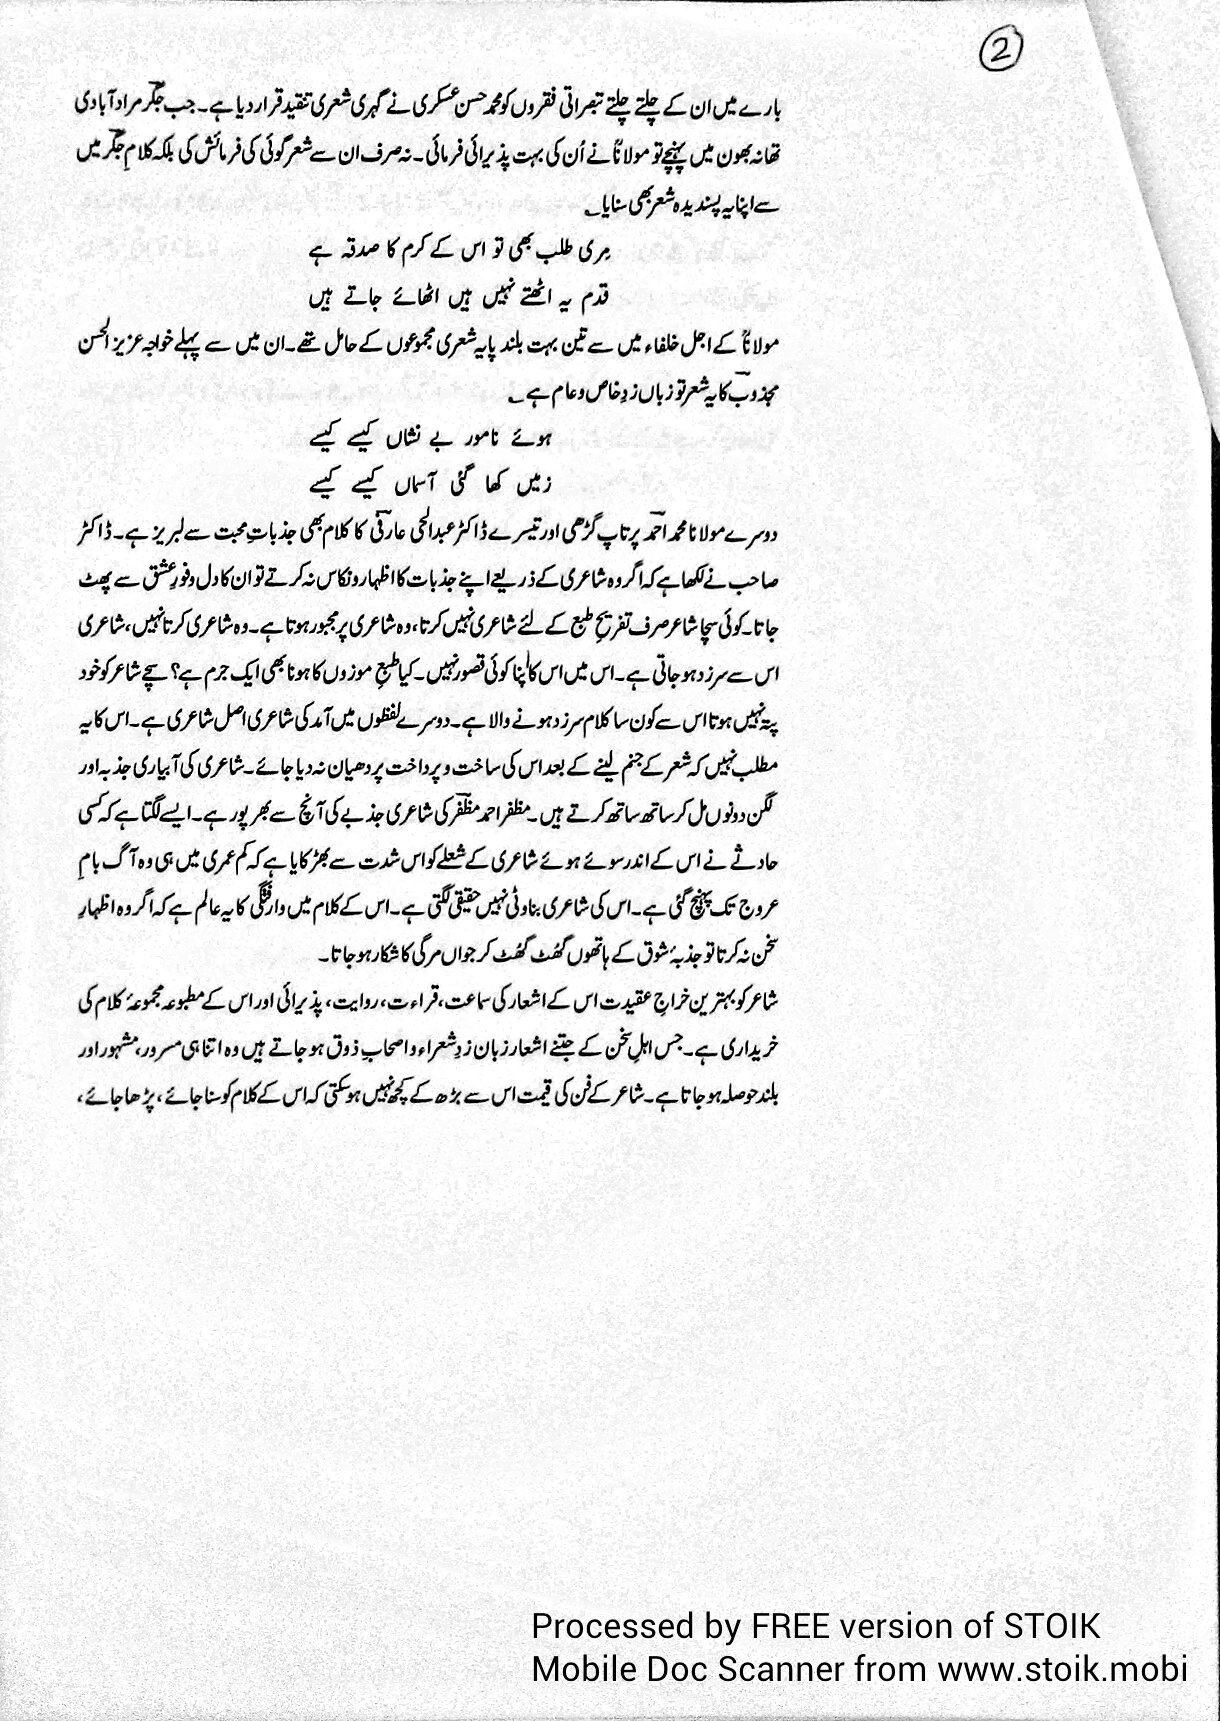 2
بارے میں ان کے چلتے چلتے تبصراتی فقروں کو محمد حسن عسکری نے گہری شعری تنقید قرار دیا ہے۔ جب جگر مراد آبادی
تھانہ بھون میں پہنچے تو مولاناؒ نے اُن کی بہت پذیرائی فرمائی۔ نہ صرف ان سے شعر گوئی کی فرمائش کی بلکہ کلامِ جگر میں
سے اپنا یہ پسندیدہ شعر بھی سنایا ؎
مِری طلب بھی تو اس کے کرم کا صدقہ ہے
قدم یہ اٹھتے نہیں ہیں اٹھائے جاتے ہیں
مولاناؒ کے اجل خلفاء میں سے تین بہت بلند پایہ شعری مجموعوں کے حامل تھے۔ ان میں سے پہلے خواجہ عزیز الحسن
مجذوب کا یہ شعر تو زباں زدِ خاص و عام ہے ؎
ہوئے نامور بے نشاں کیسے کیسے
زمیں کھا گئی آسماں کیسے کیسے
دوسرے مولانا محمد احمد پرتاپ گڑھی اور تیسرے ڈاکٹر عبدالحی عارفی کا کلام بھی جذباتِ محبت سے لبریز ہے۔ ڈاکٹر
صاحب نے لکھا ہے کہ اگر وہ شاعری کے ذریعے اپنے جذبات کا اظہار و نکاس نہ کرتے تو ان کا دل وفورِ عشق سے پھٹ
جاتا۔ کوئی سچا شاعر صرف تفریحِ طبع کے لئے شاعری نہیں کرتا، وہ شاعری پر مجبور ہوتا ہے۔ وہ شاعری کرتا نہیں، شاعری
اس سے سرزد ہو جاتی ہے۔ اس میں اس کا اپنا کوئی قصور نہیں۔ کیا طبعِ موزوں کا ہونا بھی ایک جرم ہے؟ سچے شاعر کو خود
پتہ نہیں ہوتا اس سے کون سا کلام سرزد ہونے والا ہے۔ دوسرے لفظوں میں آمد کی شاعری اصل شاعری ہے۔ اس کا یہ
مطلب نہیں کہ شعر کے جنم لینے کے بعد اس کی ساخت و پرداخت پر دھیان نہ دیا جائے۔ شاعری کی آبیاری جذبہ اور
لگن دونوں مل کر ساتھ ساتھ کرتے ہیں۔ مظفر احمد مظفر کی شاعری جذبے کی آنچ سے بھرپور ہے۔ ایسے لگتا ہے کہ کسی
حادثے نے اس کے اندر سوئے ہوئے شاعری کے شعلے کو اس شدت سے بھڑکایا ہے کہ کم عمری میں ہی وہ آگ بامِ
عروج تک پہنچ گئی ہے۔ اس کی شاعری بناوٹی نہیں حقیقی لگتی ہے۔ اس کے کلام میں وارفتگی کا یہ عالم ہے کہ اگر وہ اظہارِ
سخن نہ کرتا تو جذبۂ شوق کے ہاتھوں گھُٹ گھُٹ کر جواں مرگی کا شکار ہو جاتا۔
شاعر کو بہترین خراجِ عقیدت اس کے اشعار کی سماعت، قراءت، روایت، پذیرائی اور اس کے مطبوعہ مجموعۂ کلام کی
خریداری ہے۔ جس اہلِ سخن کے جتنے اشعار زبان زدِ شعراء و اصحابِ ذوق ہو جاتے ہیں وہ اتنا ہی مسرور، مشہور اور
بلند حوصلہ ہو جاتا ہے۔ شاعر کے فن کی قیمت اس سے بڑھ کے کچھ نہیں ہو سکتی کہ اس کے کلام کو سنا جائے، پڑھا جائے،
Processed by FREE version of STOIK
Mobile Doc Scanner from www.stoik.mobi